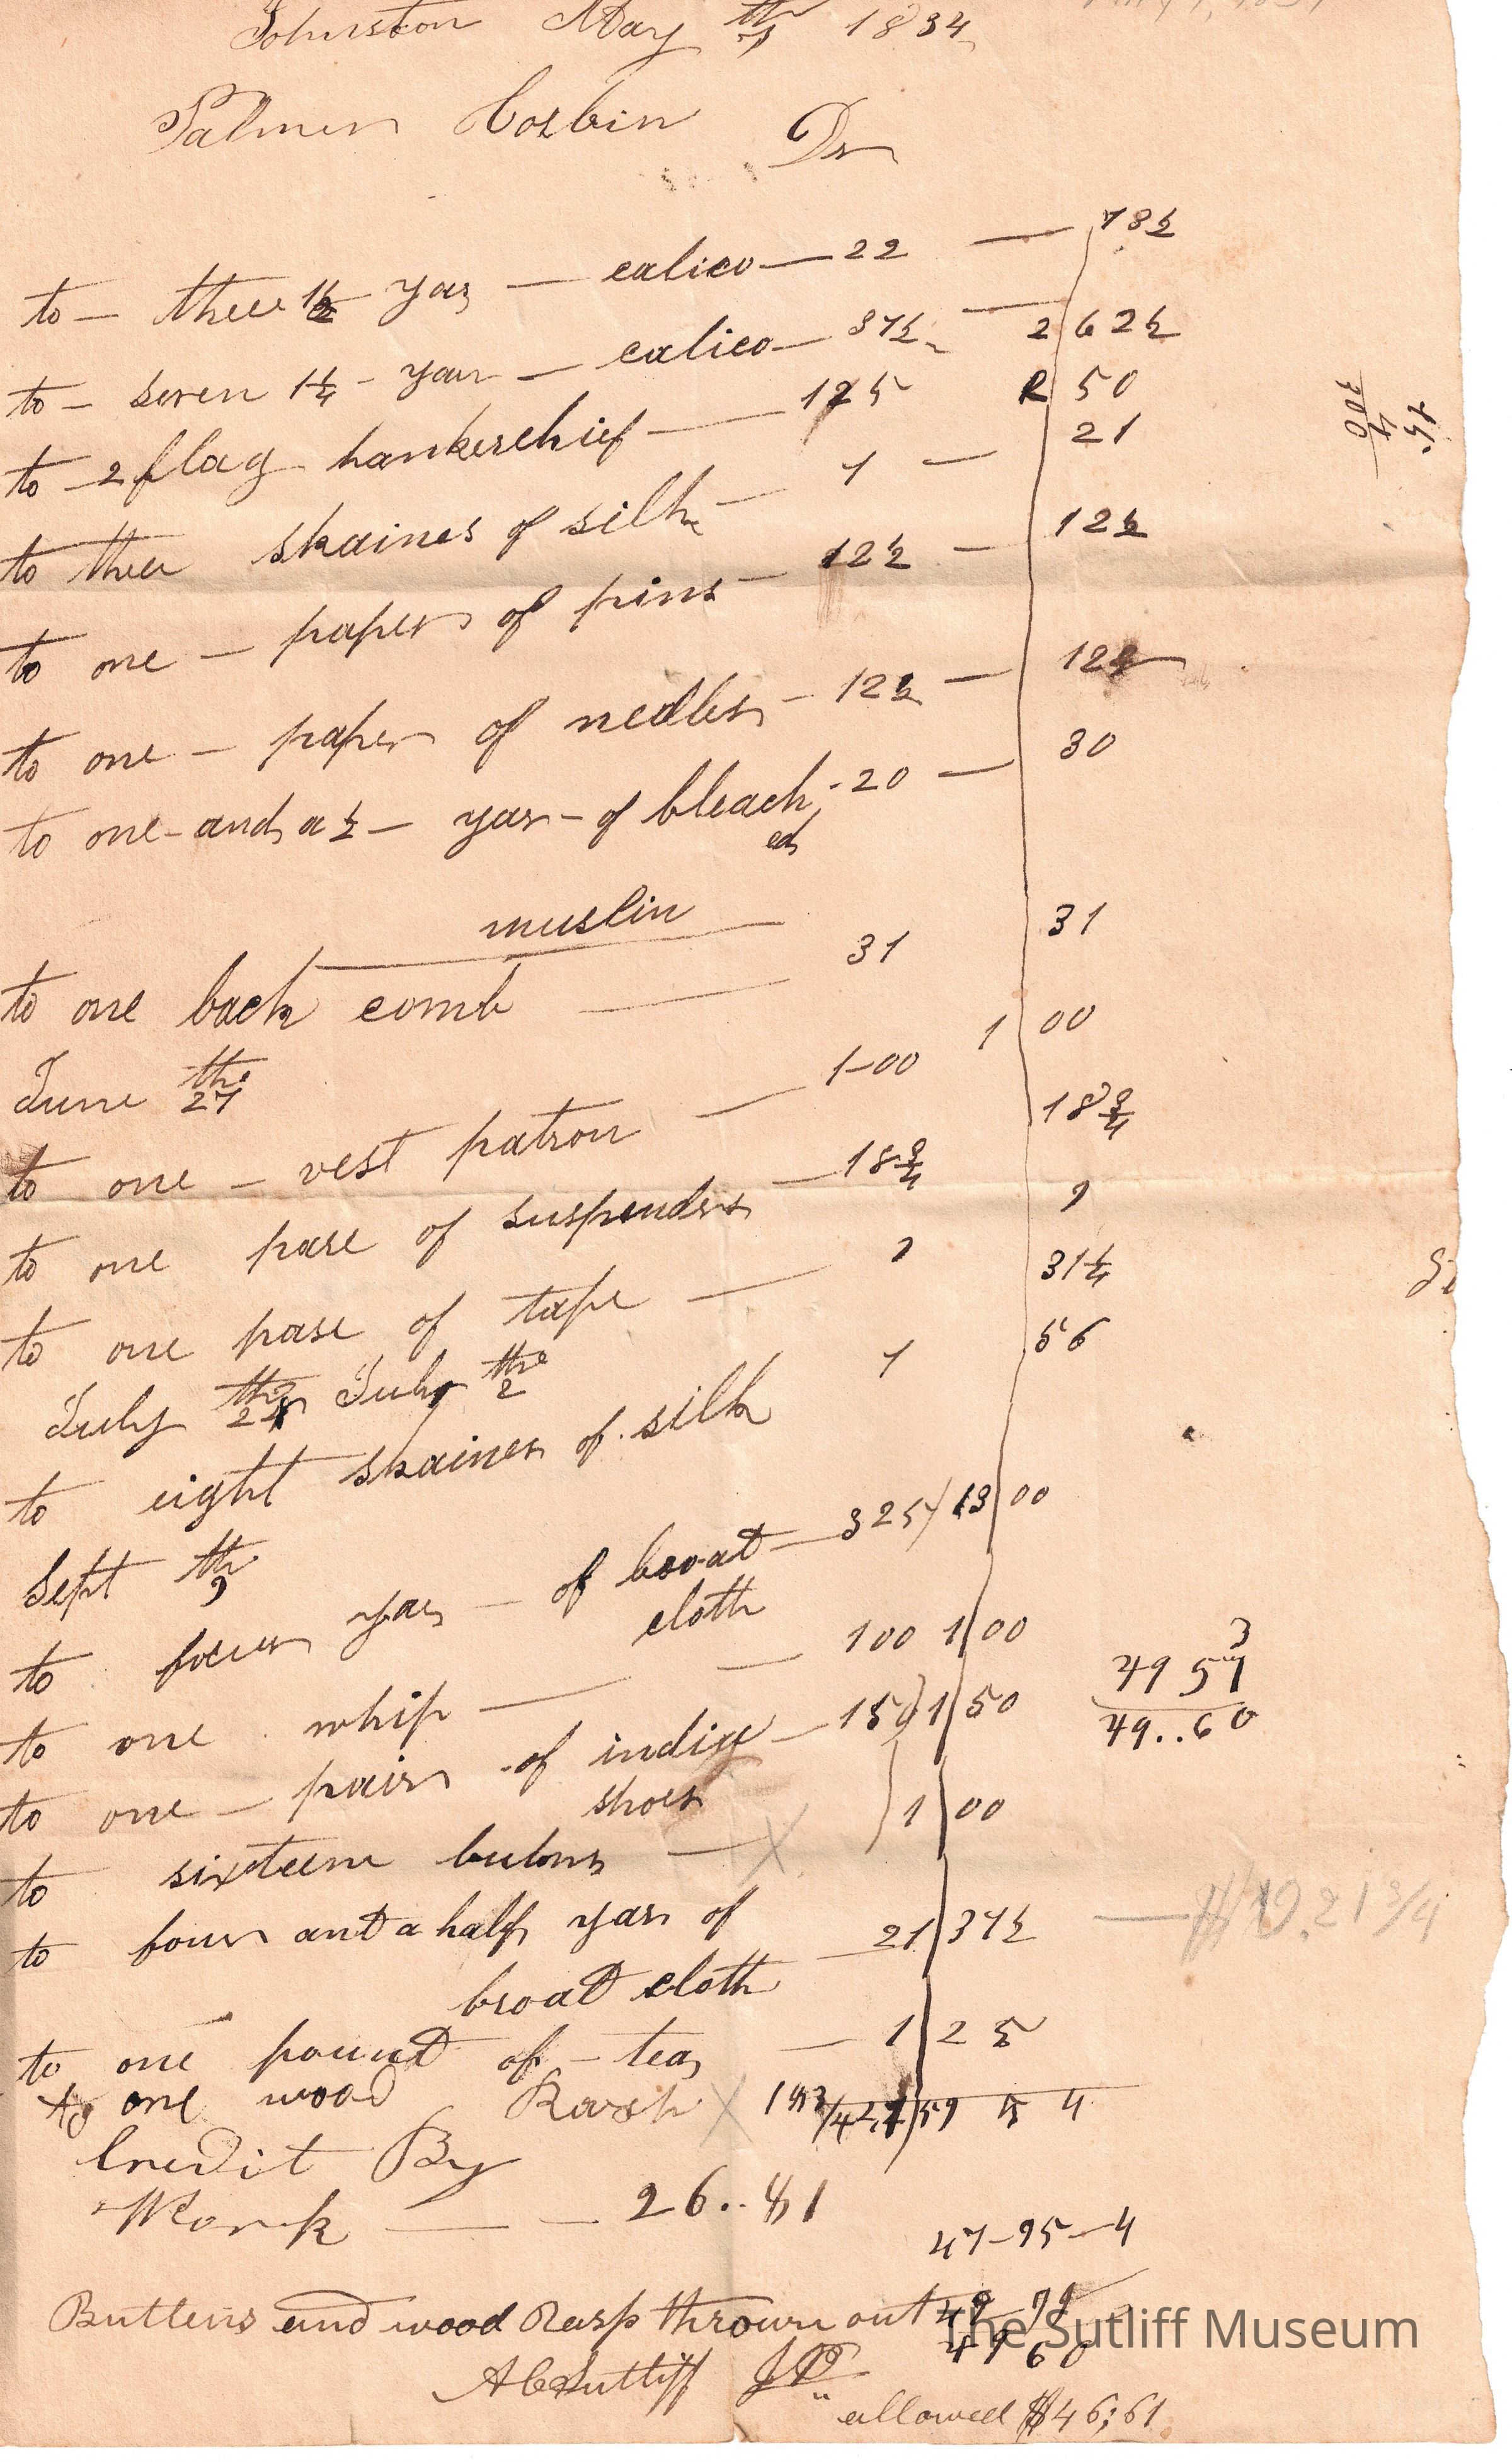 Johnston May th 7 1834
Palmer Cosbin Dr
to — three 1/2 yar — calico — 22 — 78 1/2
to — seven 1/4 - yar — calico — 37 1/2 — 2 62 1/2
to — 2 flag hankerchief — 125 2 50
to three skaines of silk — 7 — 21
to one — papers of pins — 12 1/2 — 12 1/2
to one — paper of nedles — 12 1/2 — 12 1/2
to one - and a 1/2 — yar - of bleach - 20 — 30
ed
muslin
to one back comb — 31 31
June the 27
to one — vest patron — 1-00 1 00
to one pare of suspenders — 18 3/4 18 3/4
to one pase of tape — 9 9
31 1/4
July the July the 2
to eight skaines of silk 7 56
Sept th 9
to four yar — of broat — 325 / 13 00
cloth
to one whip — — 100 1 00
to one — pair of indix — 150 1 50
shoes
to sixteen butons — 1 00
to four ant a half yar of
broat cloth — 21 37 1/2
to one pount of — tea — 1 25
to one wood Rasp X
Credit By
Work — — 26..81
47-95-4
Buttens and wood Rasp thrown out
49 60
A C Sutliff JP
allowed $46;61
75
4
300
3
49 57
49..60
— $10.21 3/4
The Sutliff Museum